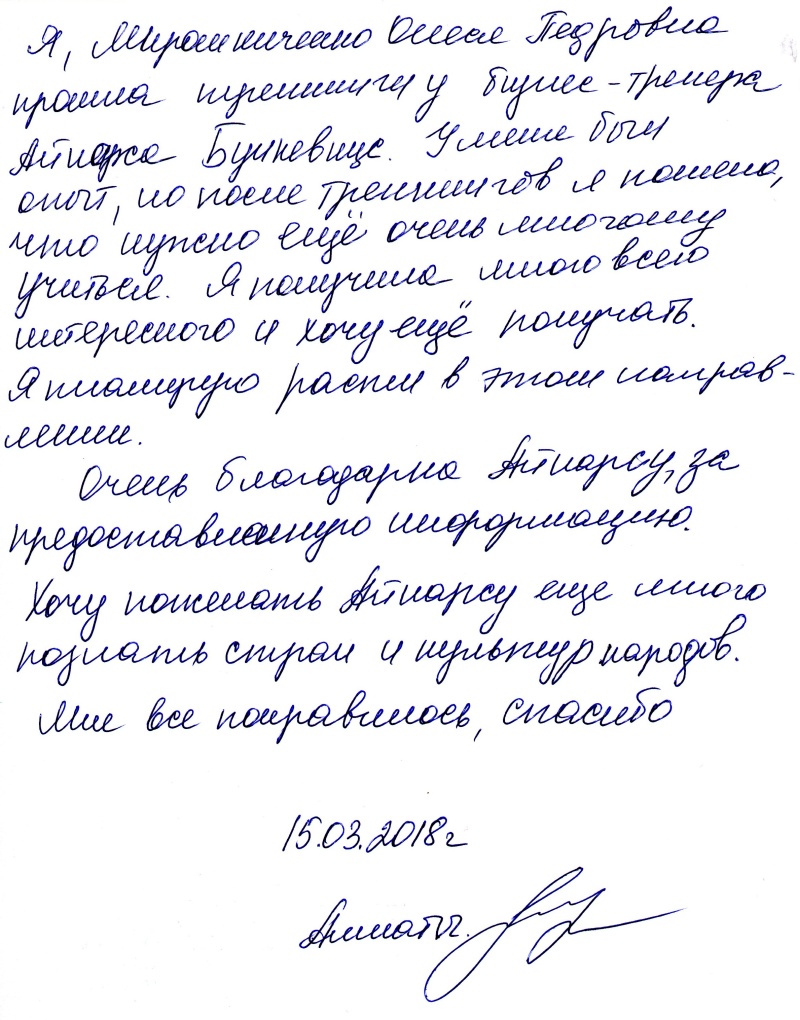 Я, Мирошниченко Олеся Петровна
прошла тренинги у бизнес-тренера
Айнарса Бункевица. У меня был
опыт, но после тренингов я поняла,
что нужно ещё очень многому
учиться. Я получила много всего
интересного и хочу ещё получать.
Я планирую расти в этом направ-
лении.
Очень благодарна Айнарсу, за
предоставленную информацию.
Хочу пожелать Айнарсу еще много
познать стран и культур народов.
Мне все понравилось, спасибо
15.03.2018г
Алматы.